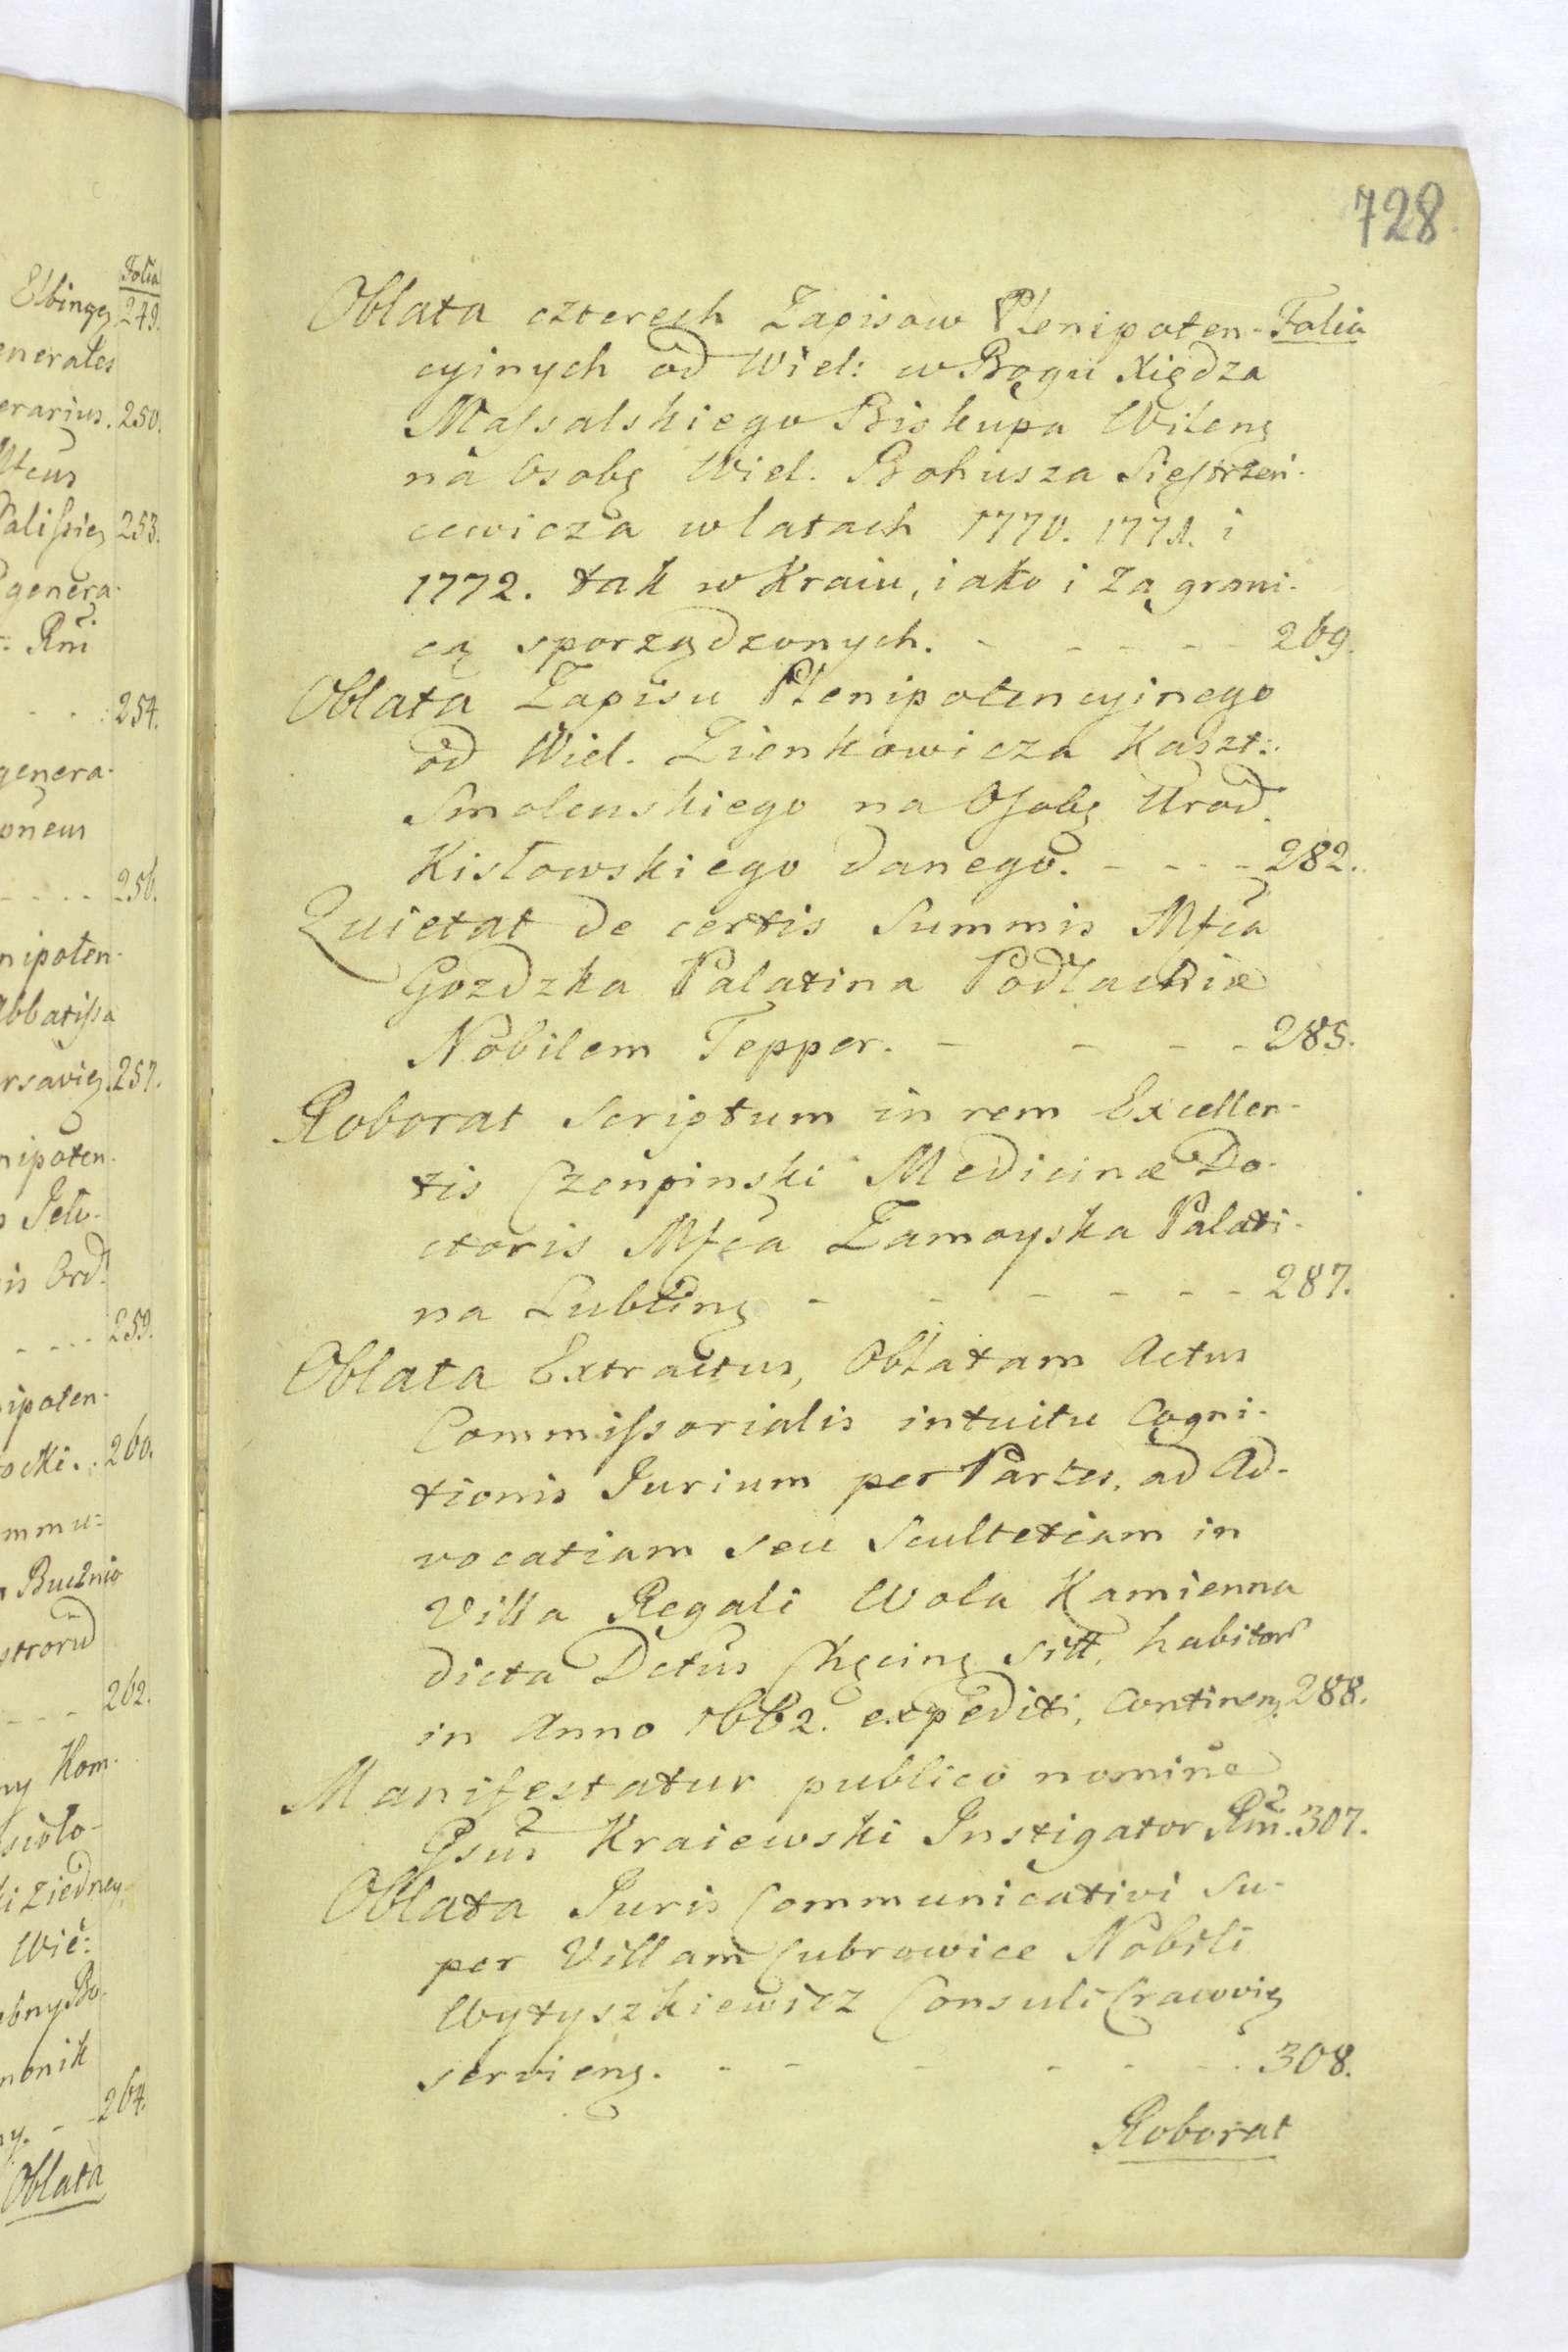 Elbingę
Folia
249.
enerales
erarius. 250.
253.
genera-
Rm̃i
254.
genera-
256.
nipoten-
Abbatiſsa
rsavię. 257.
nipoten-
is Ord.
259.
ipoten-
ocki. . 260.
mmu-
262.
ny Kom-
Wiē:
nonik
264.
Oblata
728.
Oblata czterech Zapisow Plenipoten- Folia
cyinych od Wiel: w Bogu Xiędza
Maſsalskiego Biskupa Wileng
na Osobę Wiel. Bohusza Sięstrzeń-
cewicza w latach 1770. 1771. i
1772. tak w Kraiu, iako i Za grani-
cą sporządzonych. - - - - - 269.
Oblata Zapisu Plenipotencyinego
od Wiel. Zienkowicza Kaszt:
Smolenskiego na Osobę Urod.
Kisłowskiego danego. - - - - 282.
Quietat de certis Summis Mfca
Gozdzka Palatina Podlachiæ
Nobilem Tepper. - - - - 285.
Roborat Scriptum in rem Excellen-
tis Czenpinski Medicinæ Do-
ctoris Mfca Zamoyska Palati-
na Lubling - - - - - - 287.
Oblata Extractus, Oblatam Actus
Commiſsorialis intuitu Cogni-
tionis Jurium per Partes, ad Ad-
vocatiam seu Scultetiam in
Villa Regali Wola Kamienna
dicta Dctus Chęcing sitt, habitor̃
in Anno 1662. expediti, Continens 288.
Manifestatur publico nomine
Gsus Kraiewski Instigator Rm̃. 307.
Oblata Juris Communicativi su-
per Villam Cubrowice Nobili
Wytyszkiewicz Consuli Cracovię
servieng. - - - - - - 308.
Roborat